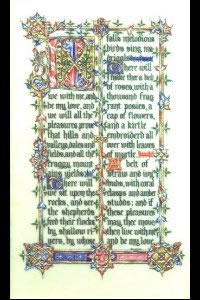 ve with me, and
be my love, and
we will all the
pleasures prove
that hills and
valleys, dales and
fields, and all the
craggy mount
ains yields.
There will
we sit upon the
rocks, and see
the shepherds
feed their flocks
by shallow ri
vers, by whose
falls melodious
birds sing ma
drigals.
There will
I make thee a bed
of roses, with a
thousand frag
rant posies, a
cap of flowers,
and a kirtle
embroider'd all
over with leaves
of myrtle.
A belt of
straw and ivy
buds, with coral
clasps and amber
studds: and if
these pleasures
may thee move
then live with me
and be my love.